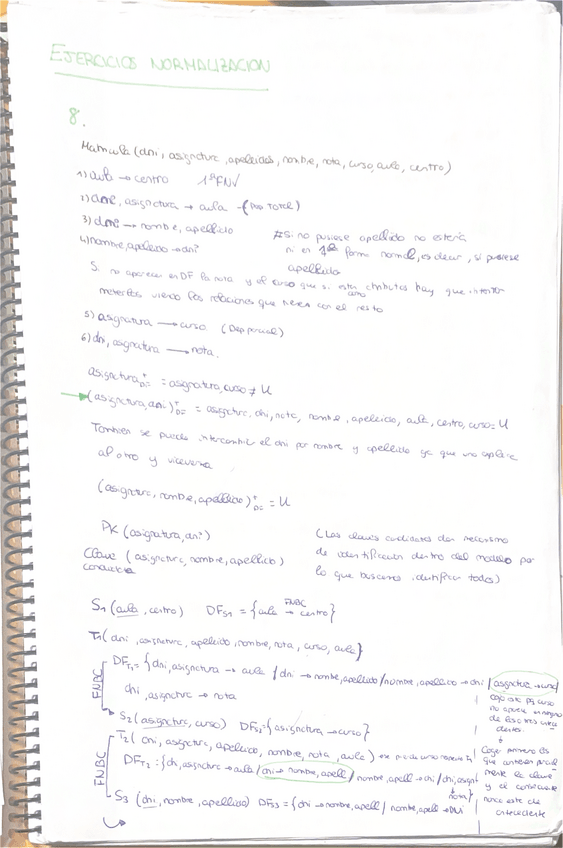 EJERCICIOS NORMALIZACION
8.
Matricula (dni, asignatura, apellidos, nombre, nota, curso, aula, centro)
1) aula → centro 1ªFN✓
2) dni, asignatura → aula (Dep TOTAL)
3) dni → nombre, apellido
4) nombre, apellido → dni
#Si no pusiese apellido no estería
ni en 1ª forma normal, es decir, si pusiese
apellidos
Si no aparece en DF la nota y el curso que si estan como atributos hay que intentar
meterlos viendo las relaciones que tienen con el resto
5) asignatura → curso (Dep parcial)
6) dni, asignatura → nota.
asignatura⁺DF = asignatura, curso ≠ U
(asignatura, dni)⁺DF = asignatura, dni, nota, nombre, apellido, aula, centro, curso = U
Tambien se puede intercambiar el dni por nombre y apellido ya que uno implica
al otro y viceversa
(asignatura, nombre, apellido)⁺DF = U
PK (asignatura, dni)
Clave (asignatura, nombre, apellido)
candidata
(Las claves candidatas dan mecanismo
de identificación dentro del modelo por
lo que buscamos identificar todos)
S1 (aula, centro) DFS1 = {aula → centro}
FNBC
T1 (dni, asignatura, apellido, nombre, nota, curso, aula}
FNBC
DFT1 = {dni, asignatura → aula / dni → nombre, apellido / nombre, apellido → dni / asignatura → curso /
dni, asignatura → nota
S2 (asignatura, curso) DFS2 = {asignatura → curso}
FNBC
T2 (dni, asignatura, apellido, nombre, nota, aula)
DFT2 = {dni, asignatura → aula / dni → nombre, apell / nombre, apell → dni / dni, asignat
↓
nota}
S3 (dni, nombre, apellido) DFS3 = {dni → nombre, apell / nombre, apell → DNI
cojo este pq curso
no aparece en ninguno
de los otros
Coger primero los
que anteponen
mente la clave
y el consecuente
nunca este de
antecedente